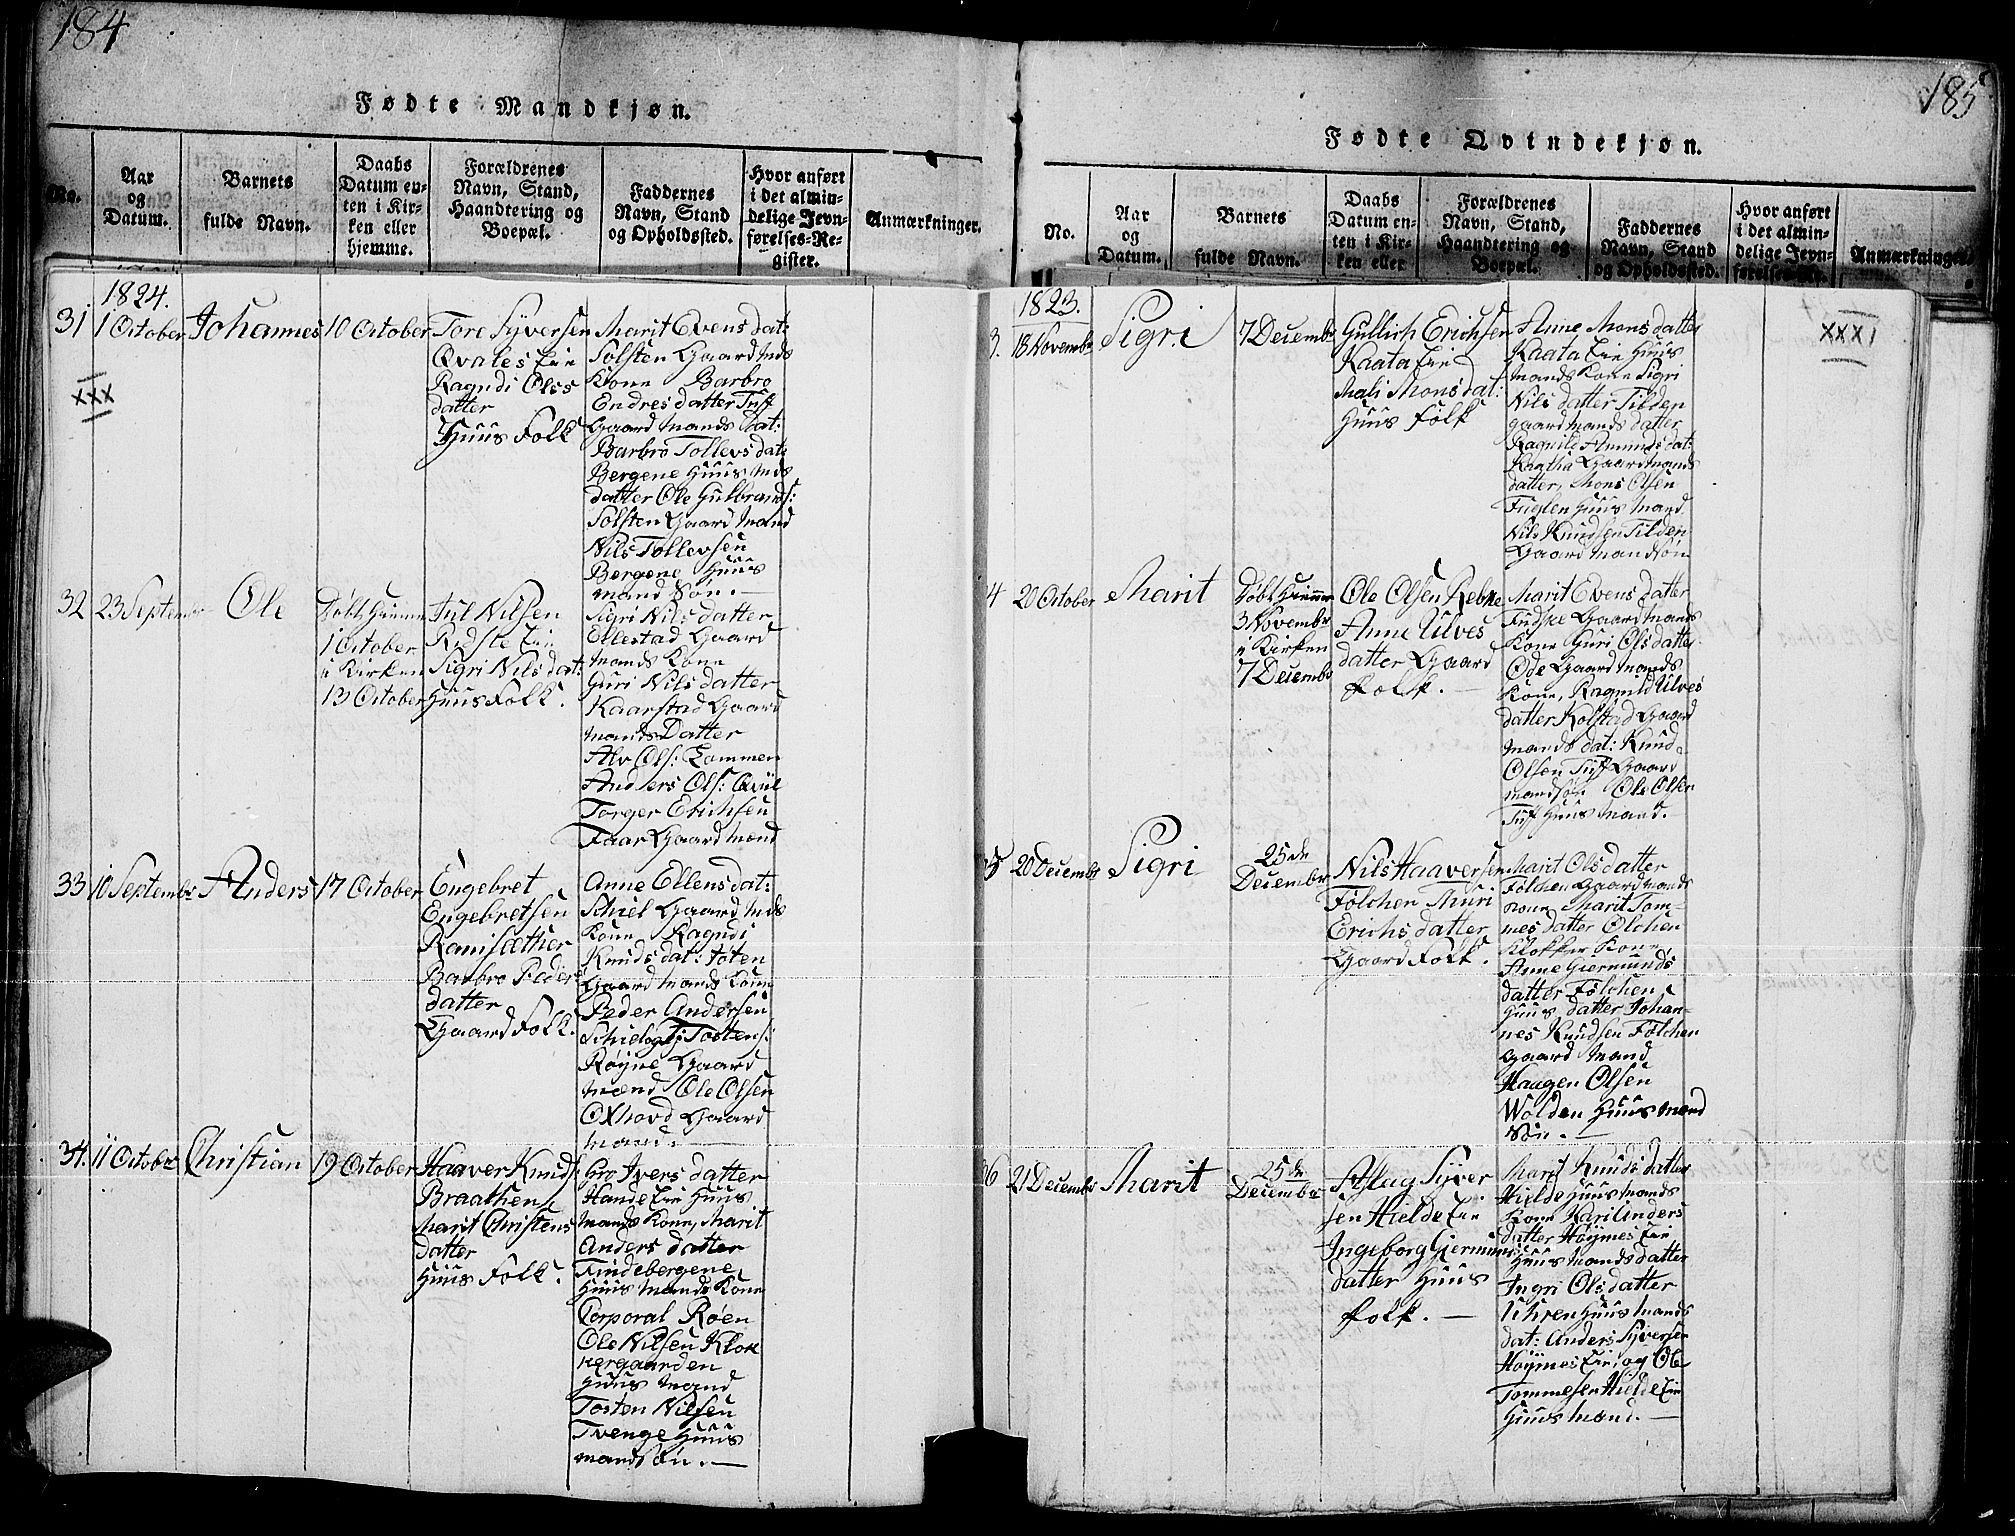 184
Fødte Mandkjøn.
No.
Aar
og
Datum.
Barnets
fulde Navn.
Daabs
Datum en-
ten i Kir-
ken eller
hjemme.
Forældrenes
Navn, Stand,
Haandtering og
Boepæl.
Faddernes
Navn, Stand
og Opholdssted.
Hvor anført
i det almin-
delige Jevn-
førelses-Re-
gister.
Anmærkninger.
1824.
31
1 October
Johannes
10 October
Tore Syversen
Qvales Eie
Ragndi Ols
datter
Huus Folk
Marit Evens dat:
Solsten Gaard Mds
Kone Barbro
Endres datter Tuff
Gaard Mands Dat:
Barbro Tollevs dat:
Bergene Huus Mds
datter Ole Gulbrands:
Solsten Gaard Mand
Nils Tollevsen
Bergene Huus
mand Søn. —
XXX
32
23 Septem
Ole
Døbt Hiemme
1 October
i Kirken
13 October
Jul Nilsen
Redste Eie
Sigri Nils dat:
Huus Folk.
Sigri Nils datter
Ellestad Gaard
Mands Kone
Guri Nils datter
Kaarstad Gaard
Mands Datter
Alv Ols: Lommen
Anders Ols: Qviil
Torger Erichsen
Faar Gaard Mænd
33
10 Septembr
Anders
17 October
Engebret
Engebretsen
Ranisæther
Barbro Peders
datter
Gaard Folk.
Anne Ellens dat:
Schiel Gaard Mds
Kone Ragndi
Knuds dat: Joten
Gaard Mands Kone
Peder Andersen
Schiel og Tosten:
Røyne Gaard
mænd Ole Olsen
Oxhovd Gaard
Mand. —
34.
11 October
Christian
19 October
Haaver Knuds:
Braathen
Marit Christens
datter
Huus Folk.
Gro Ivers datter
Hande Eie Huus
Mands Kone, Marit
Anders datter
Findebergene
Huus Mands Kone
Corporal Røen
Ole Nilsen Klok
kergaarden
Huus Mand
Tosten Nilsen
Tvenge Huus
mand Søn. —
185
Fødte Qvindekjøn.
No.
Aar
og
Datum.
Barnets
fulde Navn.
Daabs
Datum en-
ten i Kir-
ken eller
Forældrenes
Navn, Stand,
Haandtering og
Boepæl.
Faddernes
Navn, Stand
og Opholdssted.
Hvor anført
i det almin-
delige Jevn-
førelses-Re-
Anmærkninger.
1823.
3.
18 Novembr
Sigri
7 Decembr
Gullich Erichsen
Kaata Eie
Mali Mons dat:
Huus Folk
Anne Mons datter
Kaata Eie Huus
Mands Kone Sigri
Nils datter Tilden
Gaard Mands datter
Ragnile Amunds dat:
Kaatha Gaard Mands
datter, Mons Olsen
Fuglen Huus Mand
Nils Knudsen Tilden
Gaard Mand Søn
XXXI
4
20 October
Marit
Døbt Hiemme
3 Novembr
i Kirken
7 Decembr
Ole Olsen Rebne
Anne Ulves
datter Gaard
Folk. —
Marit Evens datter
Fudske Gaard Mands
Kone Guri Ols datter
Øde Gaard Mands
Kone, Ragnild Ulves
datter Kolstad Gaard
Mands dat: Knud
Olsen Tuff Gaard
mand Søn Ole Olsen
Tuff Huus Mand.
5
20 Decembr
Sigri
25de
Decembr
Nils Haaversen
Følchen Muri
Erichs datter
Gaard Folk.
Marit Ols datter
Følchen Gaard Mands
Kone Marit Tom-
mes datter Ølchen
Klokker Kone
Anne Giermunds
datter Følchen
Huus datter Johan-
nes Knudsen Følchen
Gaard Mand
Haagen Olsen
Wolden Huus Mand
Søn. —
6
21 Decembr
Marit
25de
Decembr
Aslag Syver
sen Hielde Eie
Ingeborg Giermunds
datter Huus
Folk. —
Marit Knuds datter
Hielde Huus Mands
Kone Kari Anders
datter Høymes Eie
Huus Mands datter
Ingri Ols datter
Uhren Huus Mands
dat: Anders Syversen
Høymes Eie og Ole
Tommesen Hielde Eie
Huus Mand. —